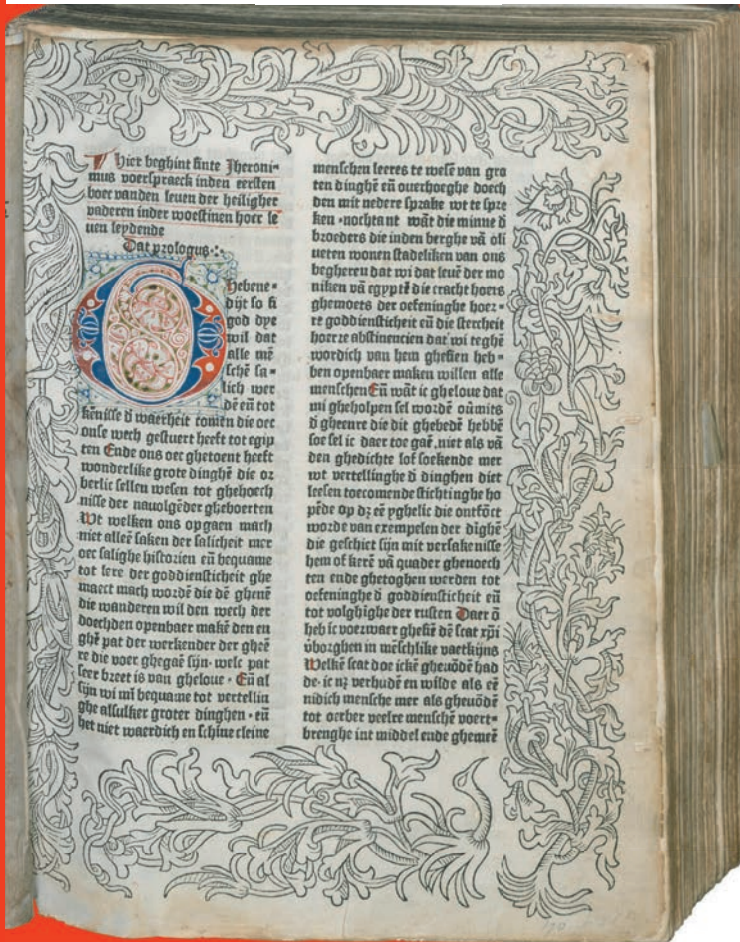 Hier beghint sinte Jheroni-
mus voerspraeck inden eersten
boec vanden leuen der heiligher
vaderen inder woestinen hoer le
uen leydende
Dat prologus
Ghebene-
dijt so si
god dye
wil dat
alle mē
schē sa-
lich wer
dē eñ tot
kēnisse d̄ waerheit comen die oec
onse wech gestuert heeft tot egip
ten Ende ons oec ghetoent heeft
wonderlike grote dinghē die or
berlic sellen wesen tot ghehoech
nisse der nauolgēder gheboerten
Wt welken ons opgaen mach
niet alleē saken der salicheit mer
oec salighe historien eñ bequame
tot lere der goddiensticheit ghe
maect mach wordē die dē ghenē
die wanderen wil den wech der
doechden openbaer makē den en
ghē pat der werkender der gheē
re die voer ghegaē sijn welc pat
seer breet is van gheloue Eñ al
sijn wi mī bequame tot vertellin
ghe alsulker groter dinghen eñ
het niet waerdich en schine cleine
menschen leeres te wesē van gro
ten dinghē eñ ouerhoeghe doech
den mit nedere sprake wt te spre
ken nochtant wāt die minne d̄
broeders die inden berghe vā oli
ueten wonen stadeliken van ons
begheren dat wi dat leuē der mo
niken vā egyptē die cracht hoers
ghemoets der oefeninghe hoer-
re goddiensticheit eñ die stercheit
hoerre abstinencien dat wi teghē
wordich van hem ghesien heb-
ben openbaer maken willen alle
menschen Eñ wāt ic gheloue dat
mi gheholpen sel wordē oūmits
d̄ gheenre die dit ghebedē hebbē
soe sel ic daer toe gaē niet als vā
den ghedichte lof soekende mer
wt vertellinghe d̄ dinghen diet
leesen toecomende stichtinghe ho
pēde op dz eē yghelic die ontfōct
worde van exempelen der dīghē
die geschiet sijn mit versakenisse
hem of kerē vā quader ghenoech
ten ende ghetoghen werden tot
oefeninghe d̄ goddiensticheit eñ
tot volghīghe der rusten Daer ō
heb ic voerwaer ghesiē dē scat xp̄i
v̄borghen in mēschlike vaetkijns
Welkē scat doe ickē gheuōdē had
de ic nz verhudē en wilde als eē
nidich mensche mer als gheuōdē
tot oerber veelre menschē voert-
brenghe int middel ende ghemeē